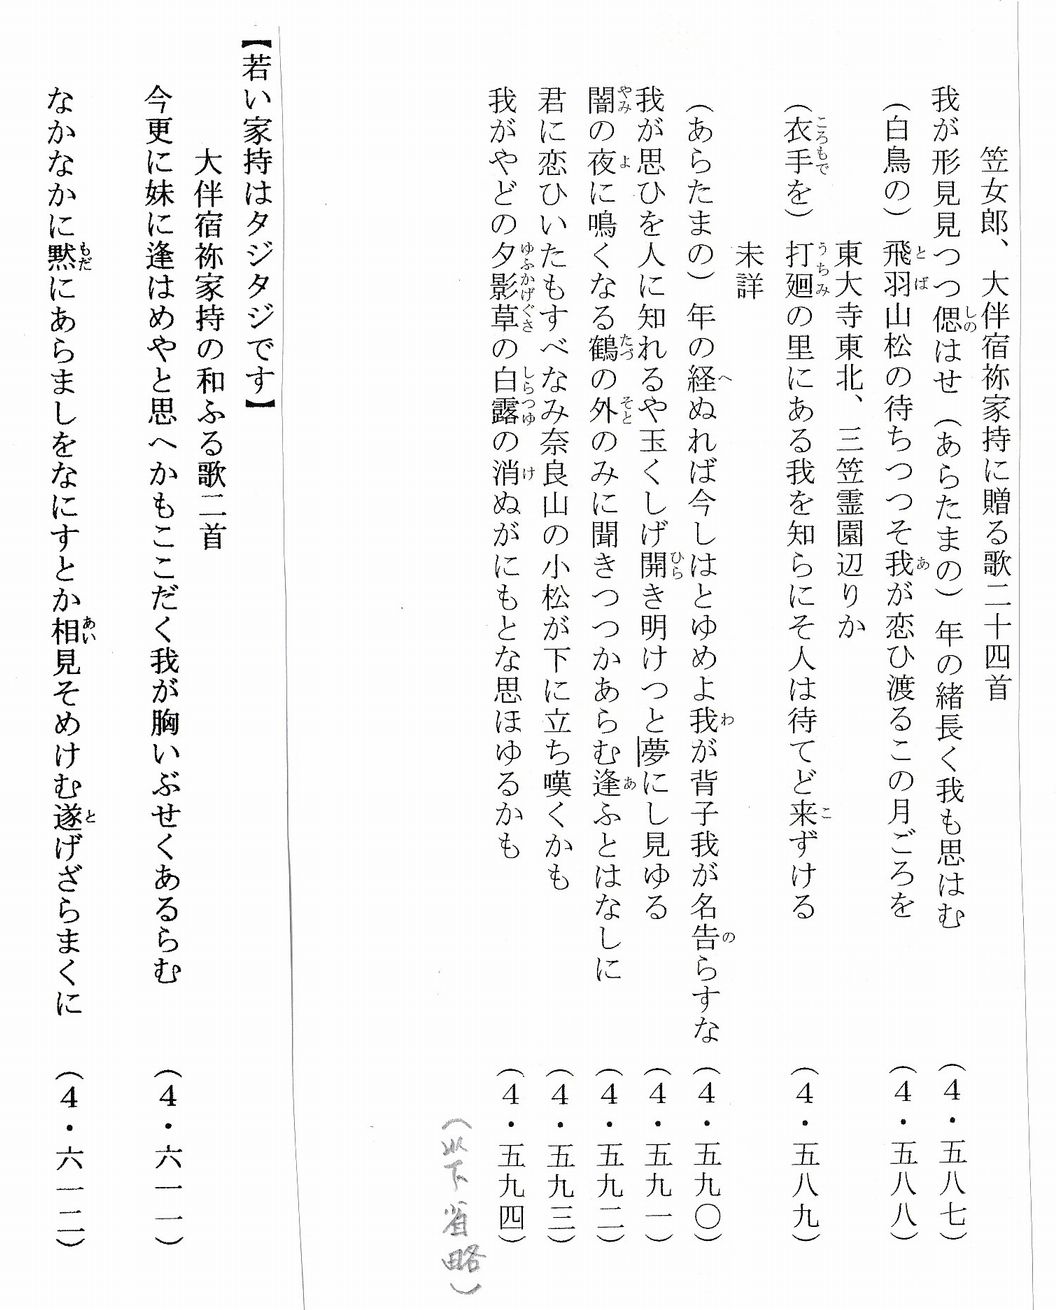 笠女郎、大伴宿祢家持に贈る歌二十四首
我が形見見つつ偲はせ（あらたまの）年の緒長く我も思はむ（４・五八七）
（白鳥の）飛羽山松の待ちつつそ我が恋ひ渡るこの月ごろを（４・五八八）
東大寺東北、三笠霊園辺りか
（衣手を）打廻の里にある我を知らにそ人は待てど来ずける（４・五八九）
未詳
（あらたまの）年の経ぬれば今しはとゆめよ我が背子我が名告らすな（４・五九〇）
我が思ひを人に知れるや玉くしげ開き明けつと夢にし見ゆる（４・五九一）
闇の夜に鳴くなる鶴の外のみに聞きつつかあらむ逢ふとはなしに（４・五九二）
君に恋ひいたもすべなみ奈良山の小松が下に立ち嘆くかも（４・五九三）
我がやどの夕影草の白露の消ぬがにもとな思ほゆるかも（４・五九四）
（以下省略）
【若い家持はタジタジです】
大伴宿祢家持の和ふる歌二首
今更に妹に逢はめやと思へかもここだく我が胸いぶせくあるらむ（４・六一一）
なかなかに黙にあらましをなにすとか相見そめけむ遂げざらまくに（４・六一二）